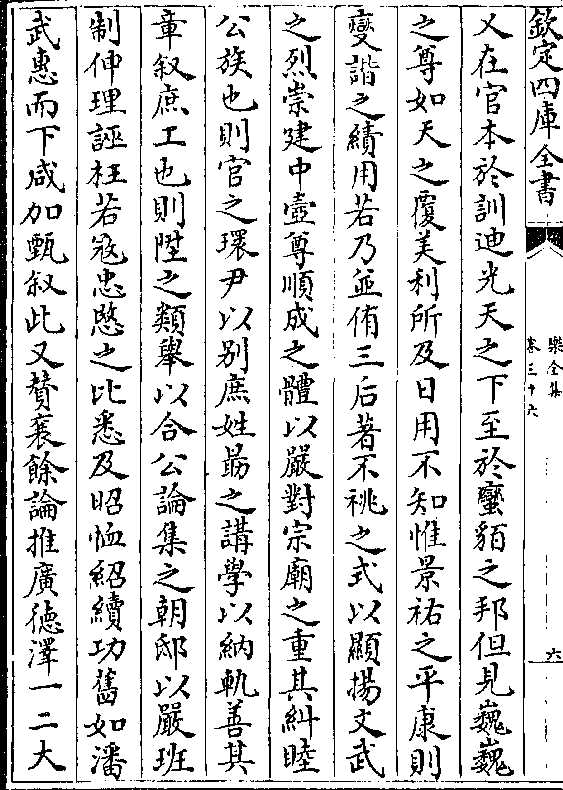 欽定四庫全書
樂全集
卷三十六
六
乂在官本於訓迪光天之下至於蠻貊之邦但見巍巍
之尊如天之覆美利所及日用不知惟景祐之平康則
燮諧之績用若乃並侑三后著不祧之式以顯揚文武
之烈崇建中壼尊順成之體以嚴對宗廟之重其糾睦
公族也則官之環尹以别庶姓勗之講學以納軌善其
章叙庶工也則陞之類舉以合公論集之朝邸以嚴班
制伸理誣枉若寇忠愍之比悉及昭恤紹續功舊如潘
武惠而下咸加甄叙此又贊襄餘論推廣徳澤一二大